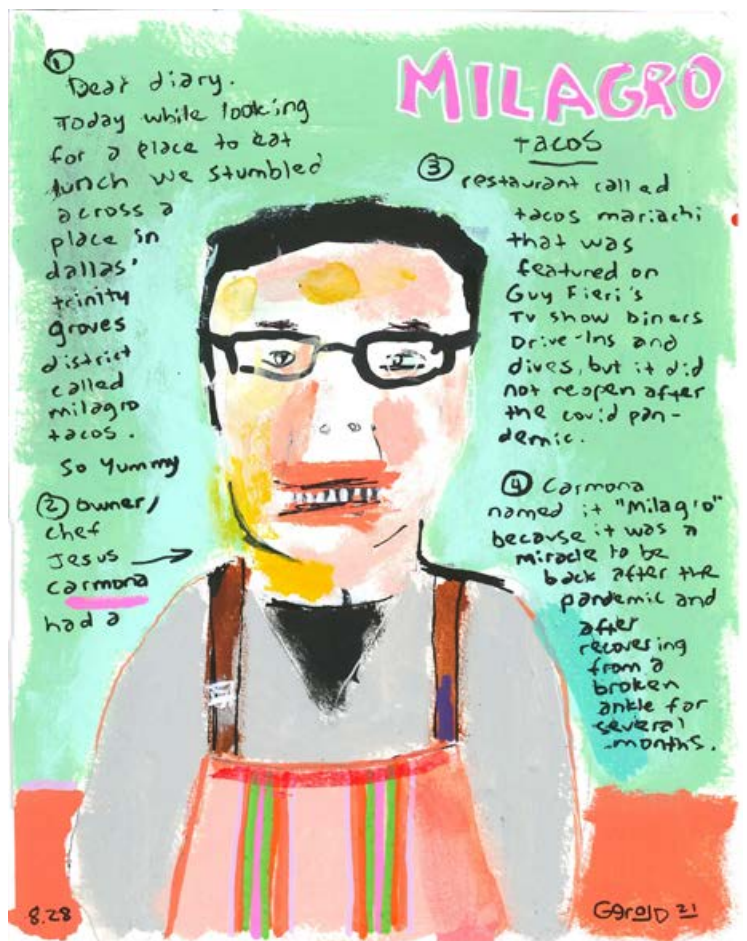 MILAGRO
tacos
①
Dear diary.
Today while looking
for a place to eat
lunch we stumbled
across a
place in
dallas'
trinity
groves
district
called
milagro
tacos.
So Yummy
② owner/
chef
Jesus
Carmona
had a
③ restaurant called
tacos mariachi
that was
featured on
Guy Fieri's
TV show Diners
Drive-Ins and
dives, but it did
not reopen after
the covid pan-
demic.
④ Carmona
named it "Milagro"
because it was a
miracle to be
back after the
pandemic and
after
recovering
from a
broken
ankle for
several
months.
8.28
Garold 21